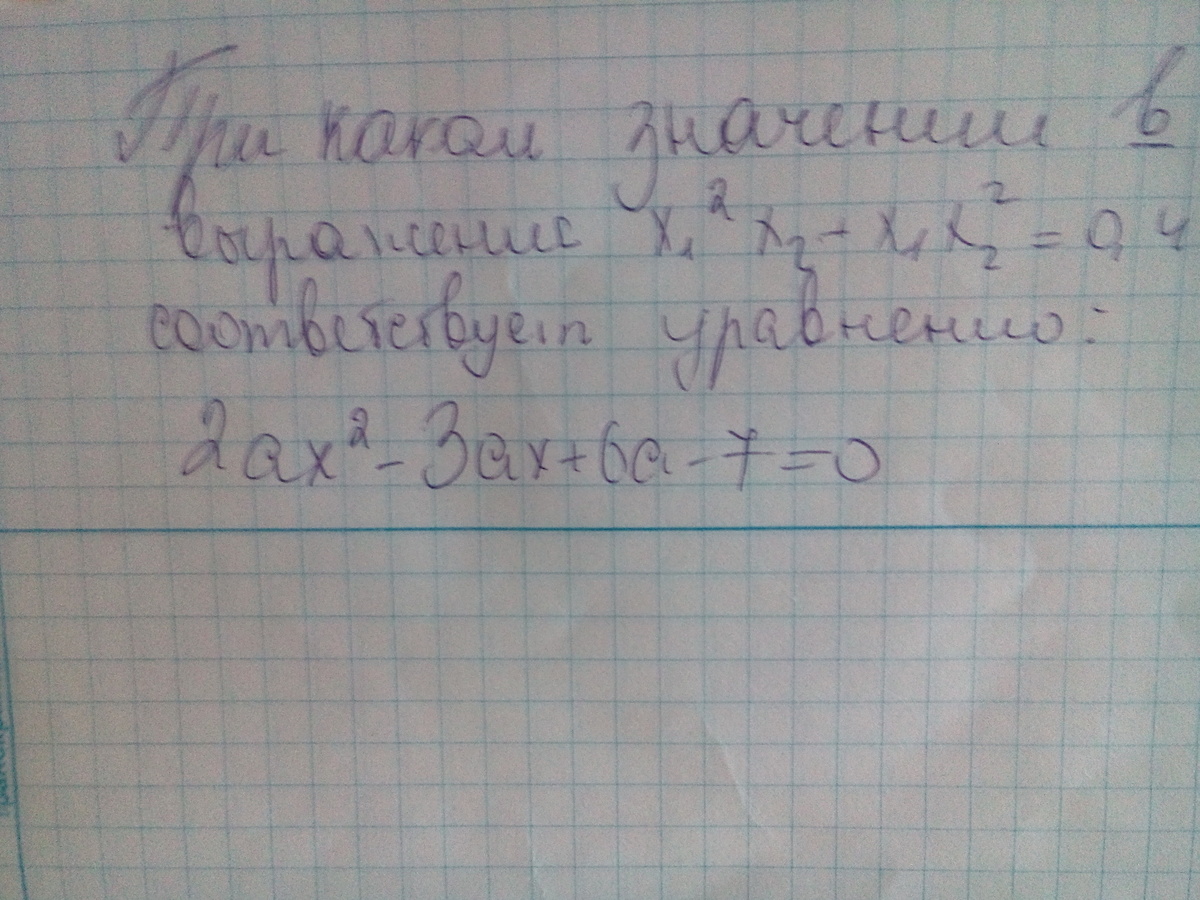 При каком значении в
выражение x₁²x₂ + x₁x₂² = 0,4
соответствует уравнению:
2ax² - 3ax + 6a - 7 = 0